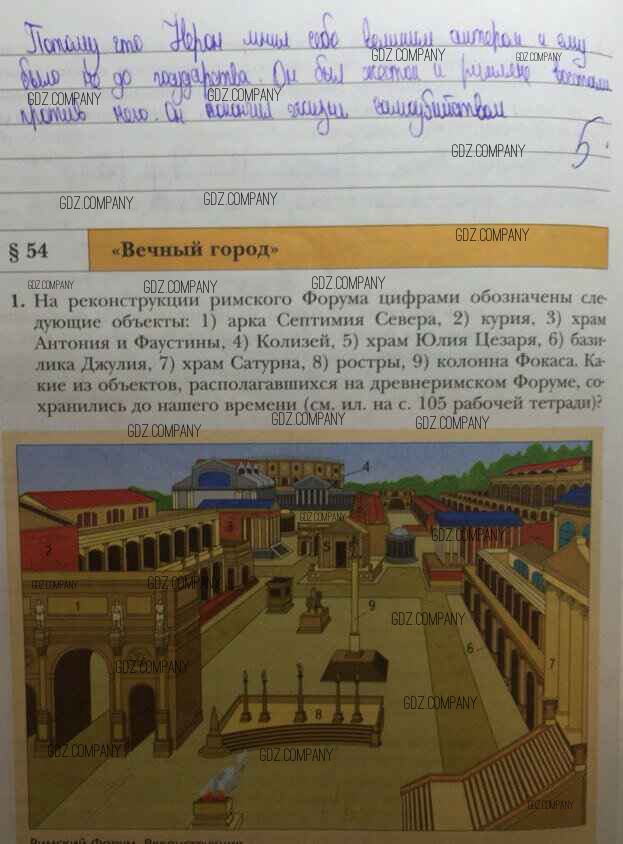 Потому что Нерон мнил себя великим актером и ему
было не до государства. Он был жесток и римляне восстали
против него. Он покончил жизнь самоубийством
5.
GDZ.COMPANY
§ 54
«Вечный город»
1. На реконструкции римского Форума цифрами обозначены сле-
дующие объекты: 1) арка Септимия Севера, 2) курия, 3) храм
Антония и Фаустины, 4) Колизей, 5) храм Юлия Цезаря, 6) бази-
лика Джулия, 7) храм Сатурна, 8) ростры, 9) колонна Фокаса. Ка-
кие из объектов, располагавшихся на древнеримском Форуме, со-
хранились до нашего времени (см. ил. на с. 105 рабочей тетради)?
4
3
2
5
1
9
6
7
8
Римский Форум. Реконструкция